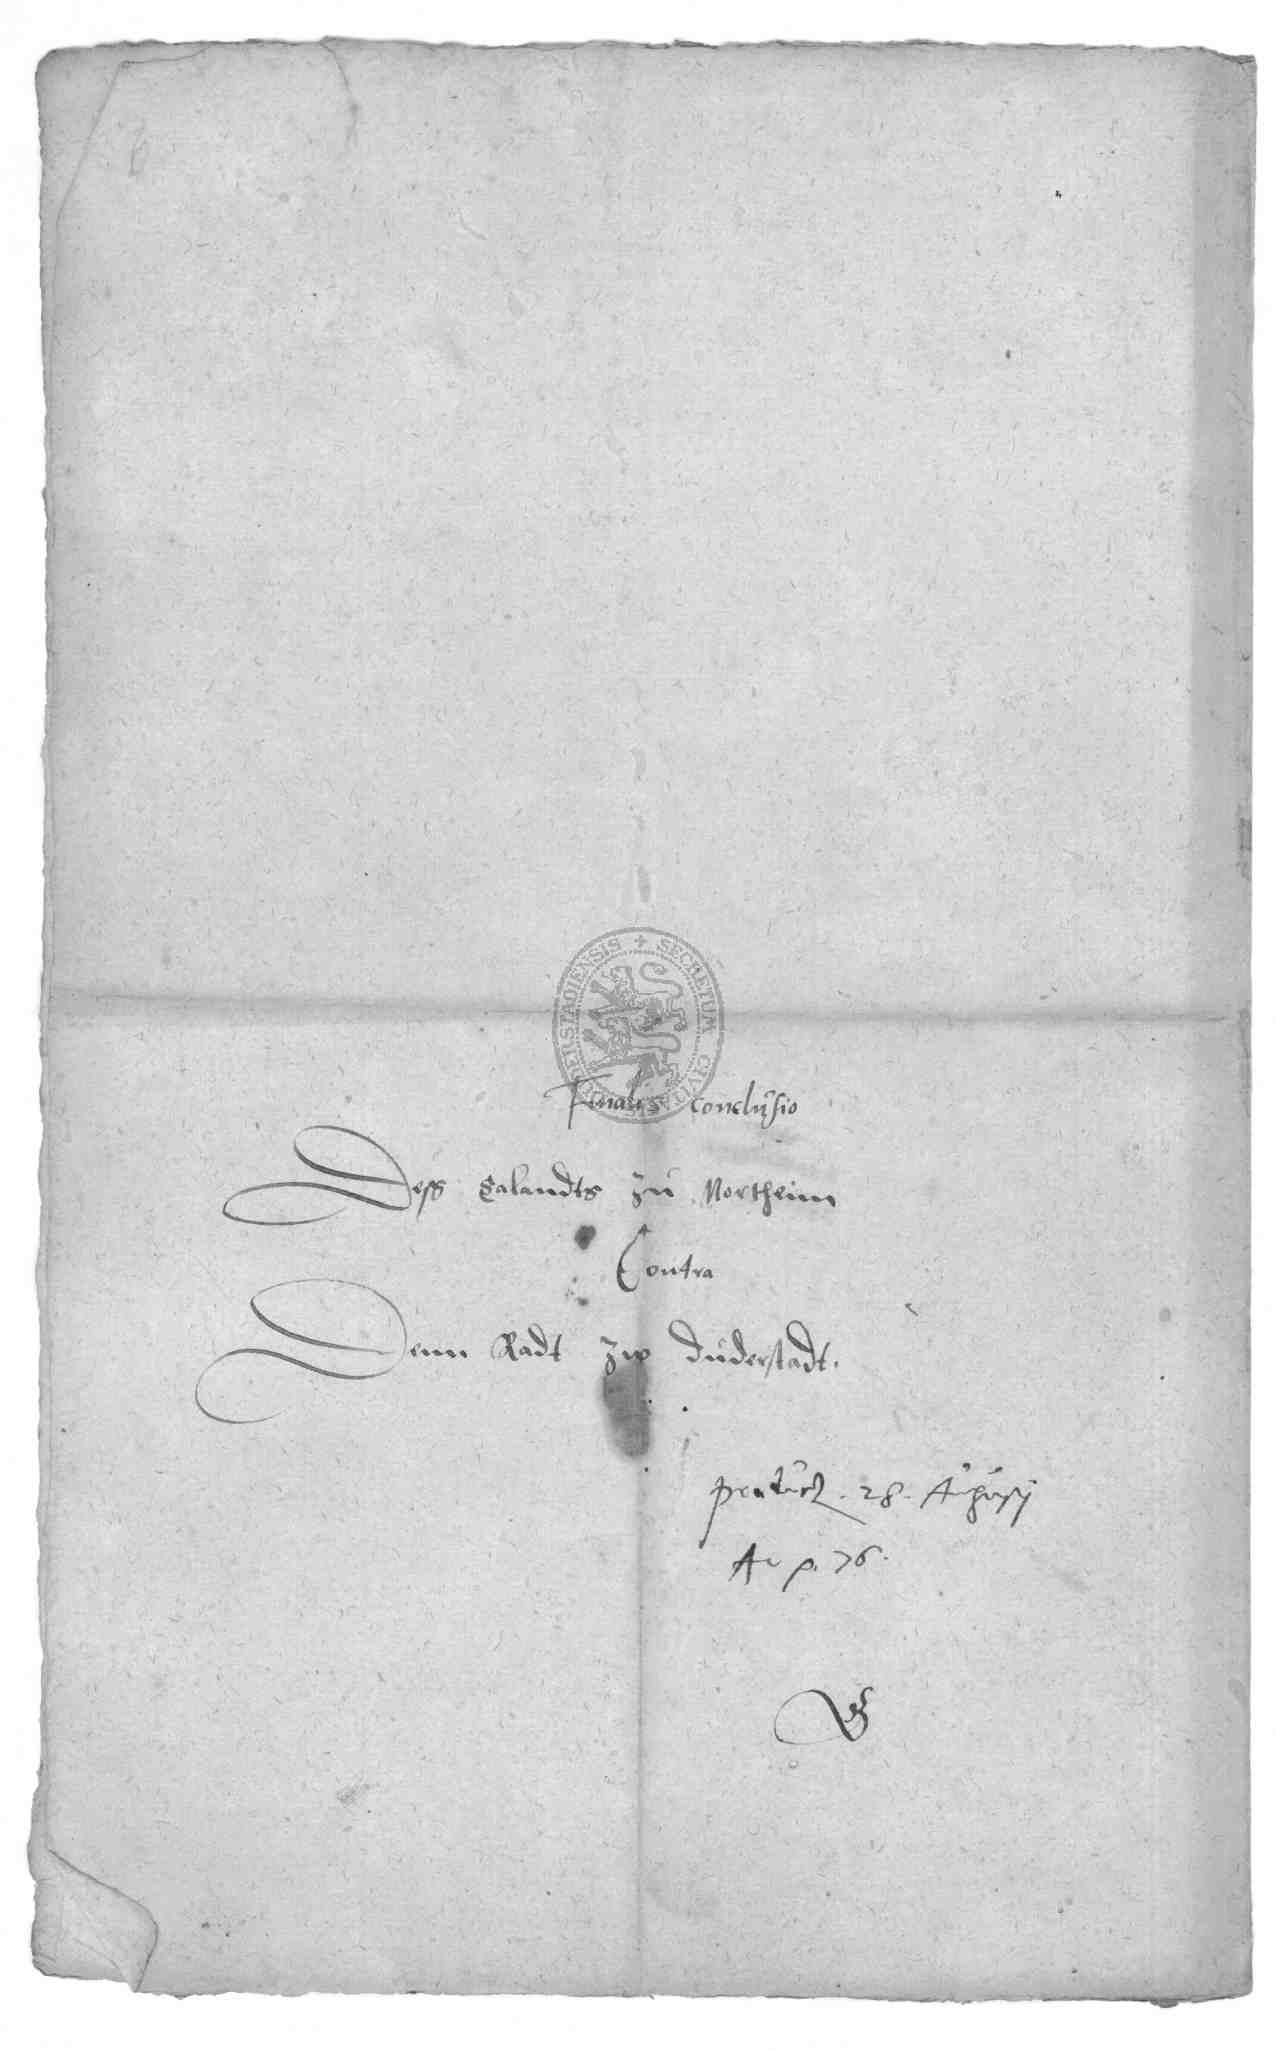 SECRETUM CIVITATIS DUDERSTADIENSIS
Finalis conclusio
Dess Calandts zu Northeim
Contra
Denn Radt zu Duderstadt.
28. Augusti
Ao p. 76.